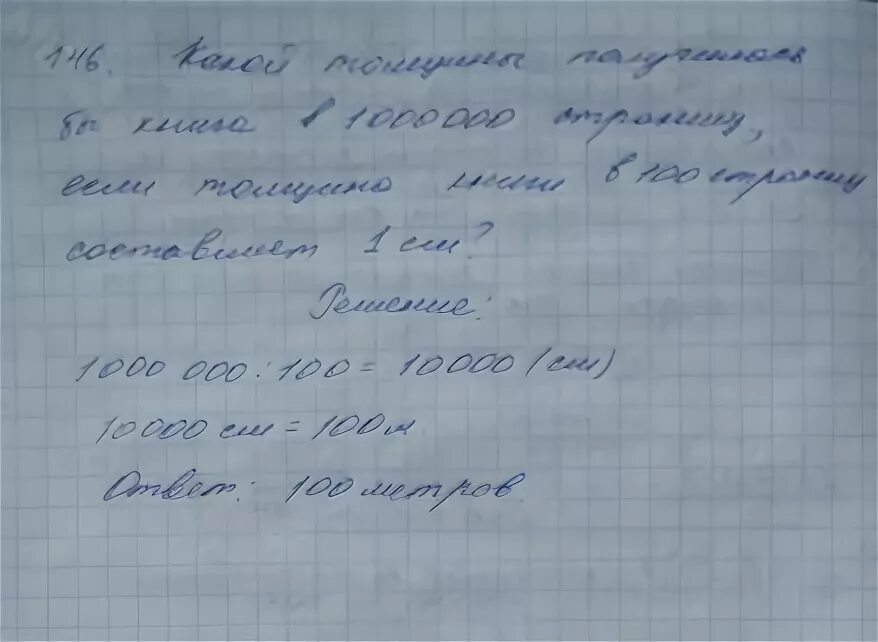 146. Какой толщины получилась
бы книга в 1000000 страниц,
если толщина книги в 100 страниц
составляет 1 см?
Решение:
1000 000 : 100 = 10000 (см)
10000 см = 100 м
Ответ: 100 метров.